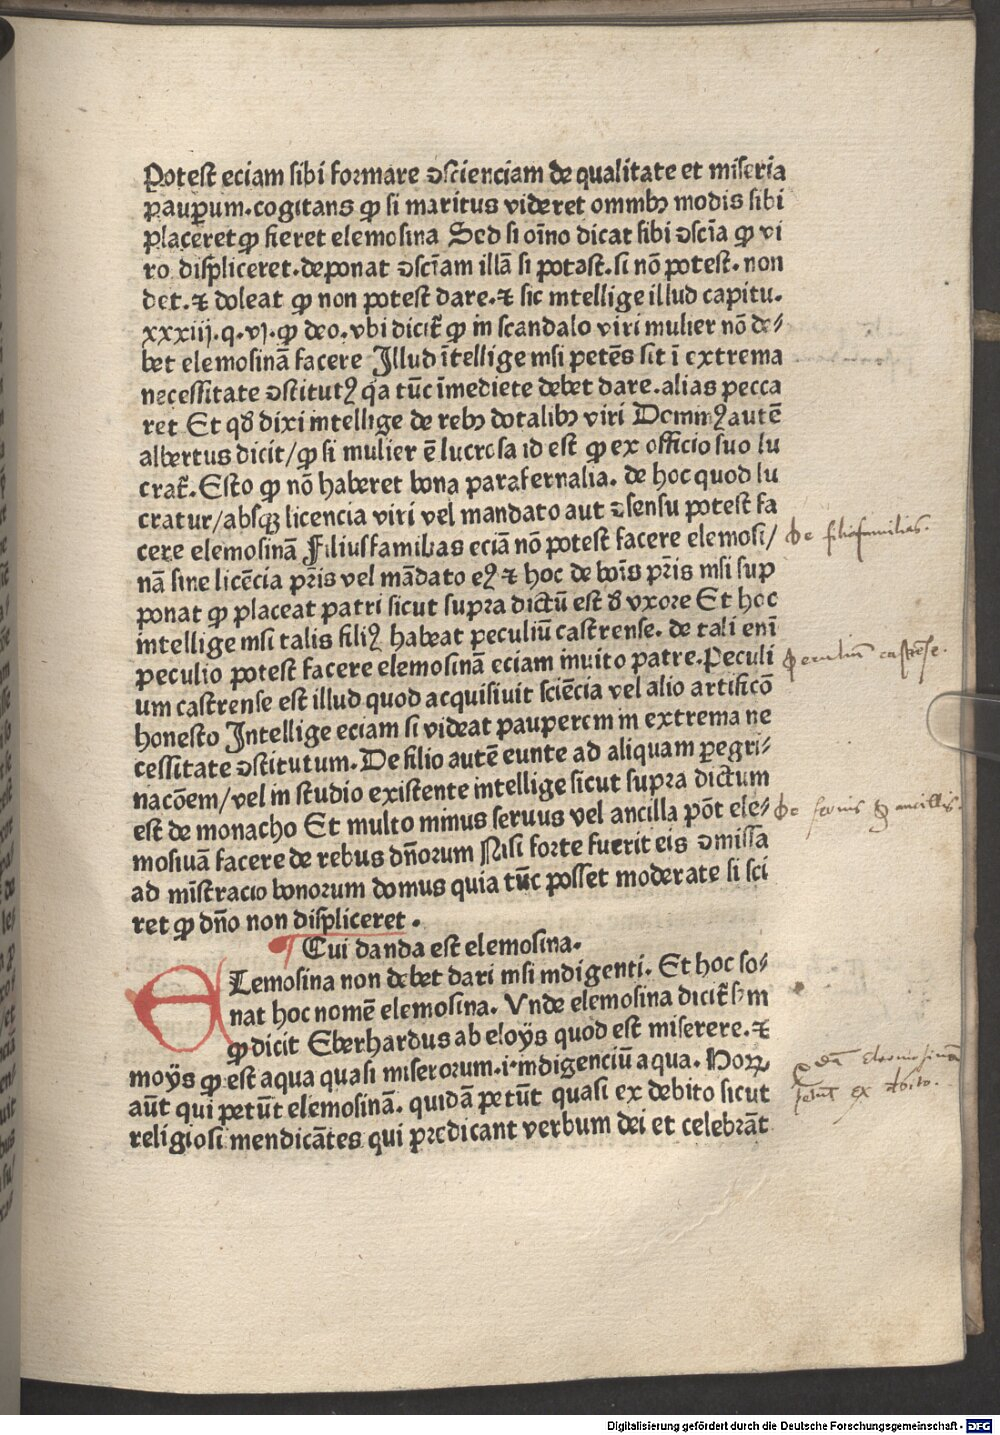 Potest eciam sibi formare ↄscienciam de qualitate et miseria
paup̲um. cogitans ꝙ si maritus videret omnibꝫ modis sibi
placeret ꝙ fieret elemosina Sed si oīno dicat sibi ↄscīa ꝙ vi
ro displiceret. deponat ↄscīam illā si potest. si nō potest. non
det. ⁊ doleat ꝙ non potest dare. ⁊ sic intellige illud capitu.
xxxiij. q. vj. ꝙ deo. vbi dicit̄ ꝙ in scandalo viri mulier nō de⸗
bet elemosinā facere Illud ītellige nisi petēs sit ī extrema
necessitate ↄstitutꝰ qa tūc īmediete debet dare. alias pecca
ret Et qđ dixi intellige de rebꝫ dotalibꝫ viri Dominꝰ autē
albertus dicit/ ꝙ si mulier ē lucrosa id est ꝙ ex officio suo lu
crat̄. Esto ꝙ nō haberet bona parafernalia. de hoc quod lu
cratur/ absqꝫ licencia viri vel mandato aut ↄsensu potest fa
cere elemosinā Filiusfamilias eciā nō potest facere elemosi/
nā sine licēcia pr̄is vel mādato eꝰ ⁊ hoc de boīs pr̄is nisi sup
ponat ꝙ placeat patri sicut supra dictū est đ vxore Et hoc
intellige nisi talis filiꝰ habeat peculiū castrense. de tali enī
peculio potest facere elemosinā eciam inuito patre. Peculi
um castrense est illud quod acquisiuit sciēcia vel alio artificō
honesto Intellige eciam si videat pauperem in extrema ne
cessitate ↄstitutum. De filio autē eunte ad aliquam ꝑegri⸗
nacōem/ vel in studio existente intellige sicut supra dictum
est de monacho Et multo minus seruus vel ancilla pōt ele⸗
mosiuā facere de rebus dn̄orum Nisi forte fuerit eis ↄmissa
ad mīstracio bonorum domus quia tūc posset moderate si sci
ret ꝙ dn̄o non displiceret.
Cui danda est elemosina.
ELemosina non debet dari nisi indigenti. Et hoc so⸗
nat hoc nomē elemosina. Vnde elemosina dicit̄ sm
ꝙ dicit Eberhardus ab eloÿs quod est miserere. ⁊
moÿs ꝙ est aqua quasi miserorum .i. indigenciū aqua. Porꝝ
aūt qui petūt elemosinā. quidā petūt quasi ex debito sicut
religiosi mendicātes qui predicant verbum dei et celebrāt
De filiofamilias.
Peculiū castrēse.
De seruis & ancillis.
Qdā elemosinam
petūt ex dbito.
Digitalisierung gefördert durch die Deutsche Forschungsgemeinschaft - DFG